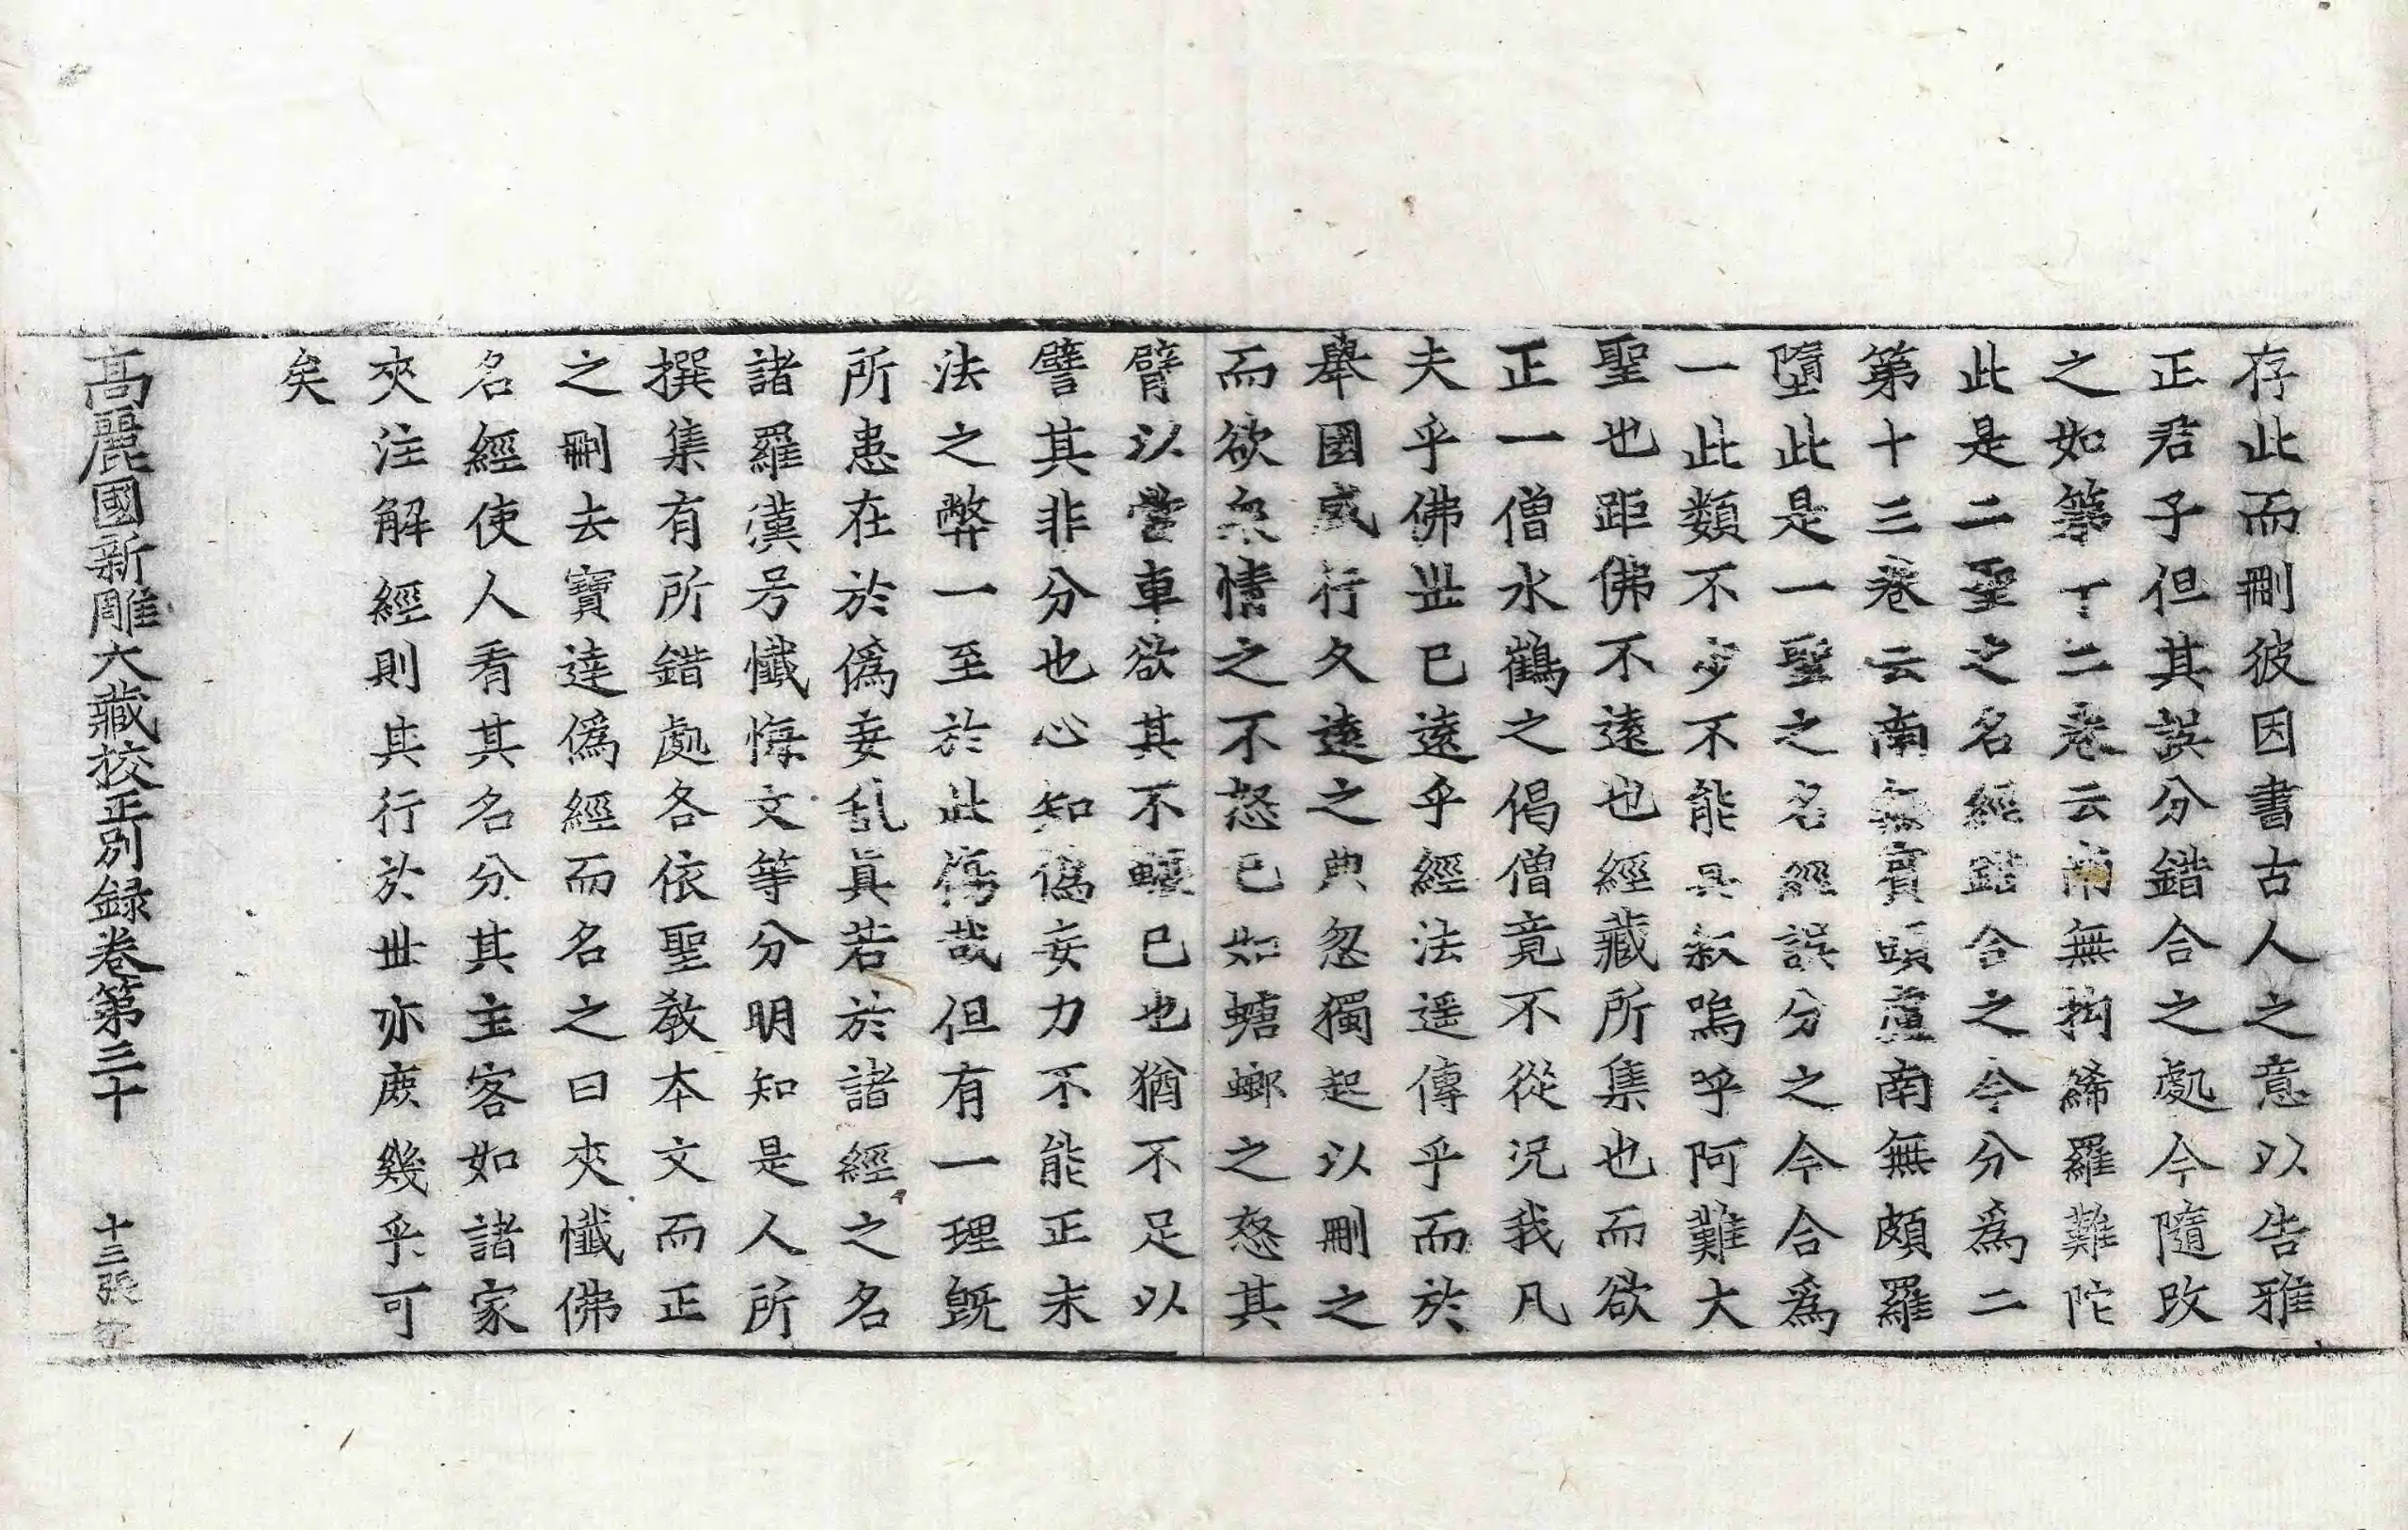 存此而刪彼因書古人之意以告雅
正君子但其誤分錯合之處今隨改
之如第十二卷云南無拘絺羅難陀
此是二聖之名經錯合之今分為二
第十三卷云南無賓頭盧南無頗羅
墮此是一聖之名經誤分之今合為
一此類不少不能具叙嗚呼阿難大
聖也距佛不遠也經藏所集也而欲
正一僧水鶴之偈僧竟不從況我凡
夫乎佛丗已遠乎經法遥傳乎而於
舉國或行久遠之典忽獨起以刪之
而欲衆情之不怒已如螗螂之怒其
臂以當車欲其不轢已也猶不足以
譬其非分也心知偽妄力不能正末
法之弊一至於此傷哉但有一理旣
所患在於偽妄乱真若於諸經之名
諸羅漢号懺悔文等分明知是人所
撰集有所錯處各依聖教本文而正
之刪去寶達偽經而名之曰夾懺佛
名經使人看其名分其主客如諸家
夾注解經則其行於丗亦庶幾乎可
矣
高麗國新雕大藏校正別録卷第三十 十三張